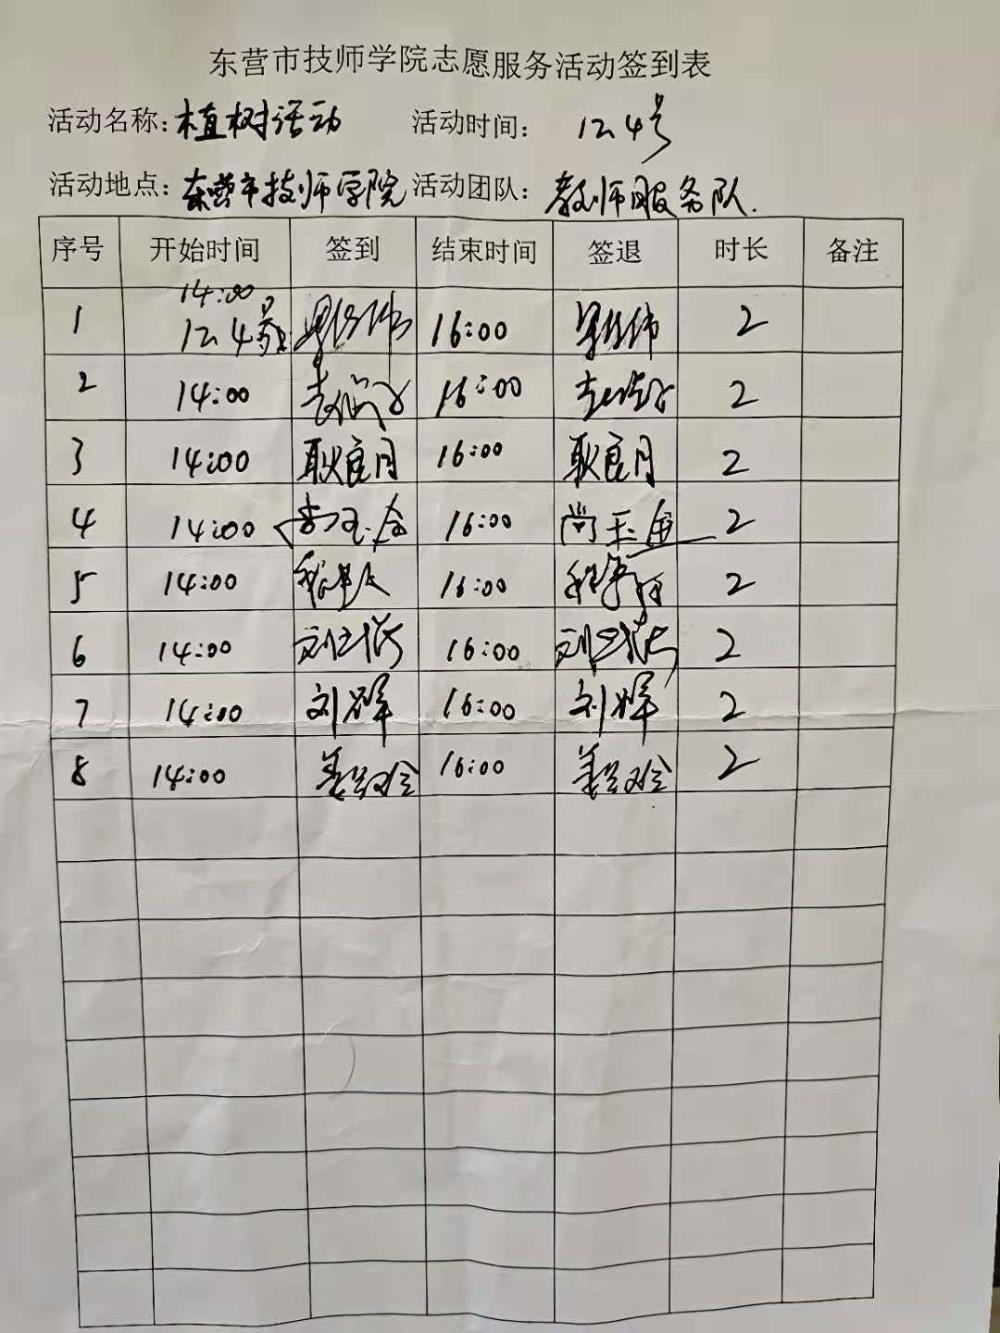 东营市技师学院志愿服务活动签到表
活动名称：植树活动 活动时间： 12.4号
活动地点：东营市技师学院 活动团队：教师服务队.
序号 开始时间 签到 结束时间 签退 时长 备注
14:00
1 12.4号 16:00 2
2 14:00 16:00 2
3 14:00 耿良月 16:00 耿良月 2
4 14:00 16:00 尚玉金 2
5 14:00 16:00 2
6 14:00 刘 16:00 刘 2
7 14:00 刘 16:00 刘 2
8 14:00 姜 16:00 姜 2